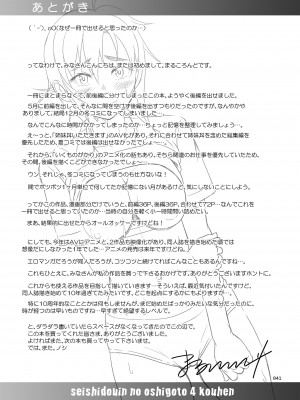 あとがき
(´-`).｡oO(なぜ一冊で出せると思ったのか…)
ってなわけで、みなさんこんにちは、または初めまして、まるころんどです。
一冊にまとまらなくて、前後編に分けてしまったこの本、ようやく後編を出せました。
5月に前編を出して、そんなに間を空けず後編を出すつもりだったのですが、なんやかや
ありまして、結局12月の冬コミになってしまいました…
なんでこんなに時間がかかってしまったのか…ちょっと記憶を整理してみましょう…。
優先したため、夏コミでは後編は出せなかったでしょ～…
それから、「いくものがかり」のアニメ化の話もあり、そちら関連のお仕事を優先していたため、
その間、後編を描くことができなかったでしょ～…
ウン それじゃ、冬コミになってしまうのも仕方ないな！
間でポツポツ1ヶ月単位で何してたか記憶にない月があるけど、気にしないことにしよう。
って か この作品、漫画部分だけでいうと、前編36P、後編36P、合わせて72P…なんでこれを
一冊で出せると思っていたのか…当時の自分を軽く小一時間問い詰めたい。
まあ、結果的に出せたからオールオッケーですけどね！
にしても、今年はAVにアニメと、2作品も映像化があり、同人誌を描き始めた頃では
想像だにしなかった1年でした…アニメの発売は来年ですけどね！
エロマンガだろうが同人だろうが、コツコツと続けてればこんなこともあるんですね。
これもひとえに、みなさんが私の作品を買って下さるおかげです、ありがとうございますホントに。
これからも使える作品を目指して描いていきます…そういえば、最近気付いたんですけど、
同人誌描き始めて10年過ぎてたみたいです、どこを起点にするかにもよりますが…
特に10周年的なことことかは何もしませんが、まだ始めたばっかりみたいな気分だったのに、
時が経つのは早いものですね…早すぎて絶望するレベルで。
と、ダラダラ書いていたらスペースがなくなってきたのでこの辺で。
この本を買ってくれた皆さま、ありがとうございました。
よければまた、次の本も買ってやって下さい。
では、また。ノシ
041
seishidouin no oshigoto 4 kouhen